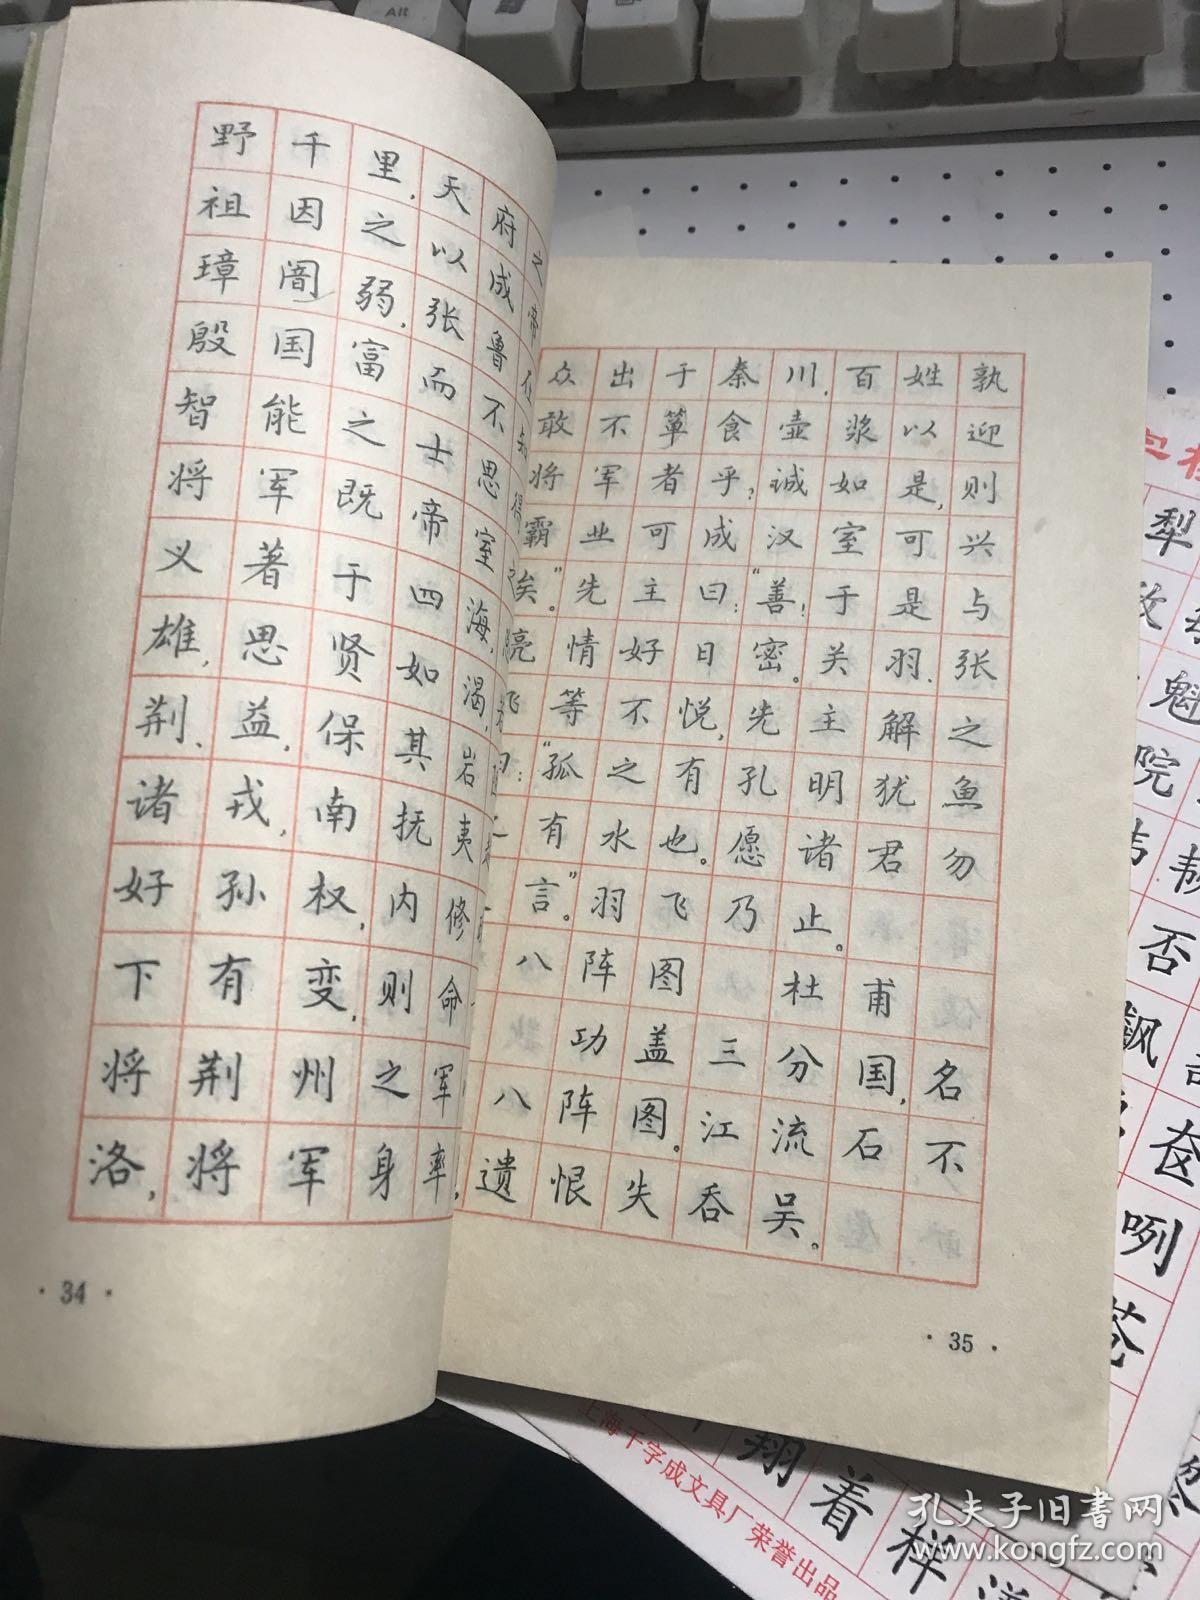 野千里,天府之
祖因之以成帝
璋闇弱,张鲁在
殷国富而不知
智能之士思得
将军既帝室
义著于四海,
雄,思贤如渴,
荆、益,保其岩
诸戎,南抚夷
好孙权,内修
下有变,则命
将荆州之军
洛,将军身率
·34·
众出于秦川,百姓孰
敢不箪食壶浆以迎
将军者乎?诚如是,则
霸业可成汉室可兴
矣。”先主曰:“善!于是与
亮情好日密。关羽、张
飞等不悦,先主解之
曰:“孤之有孔明犹鱼
有水也。愿诸君勿
言。”羽飞乃止。
八阵图 杜甫
功盖三分国,名
八阵图。江流石不
遗恨失吞吴。
·35·
犁
魁
院
否
飘
咧
苍
翔着样
上海千字成文具厂荣誉出品
Alt
孔夫子旧书网
www.kongfz.com